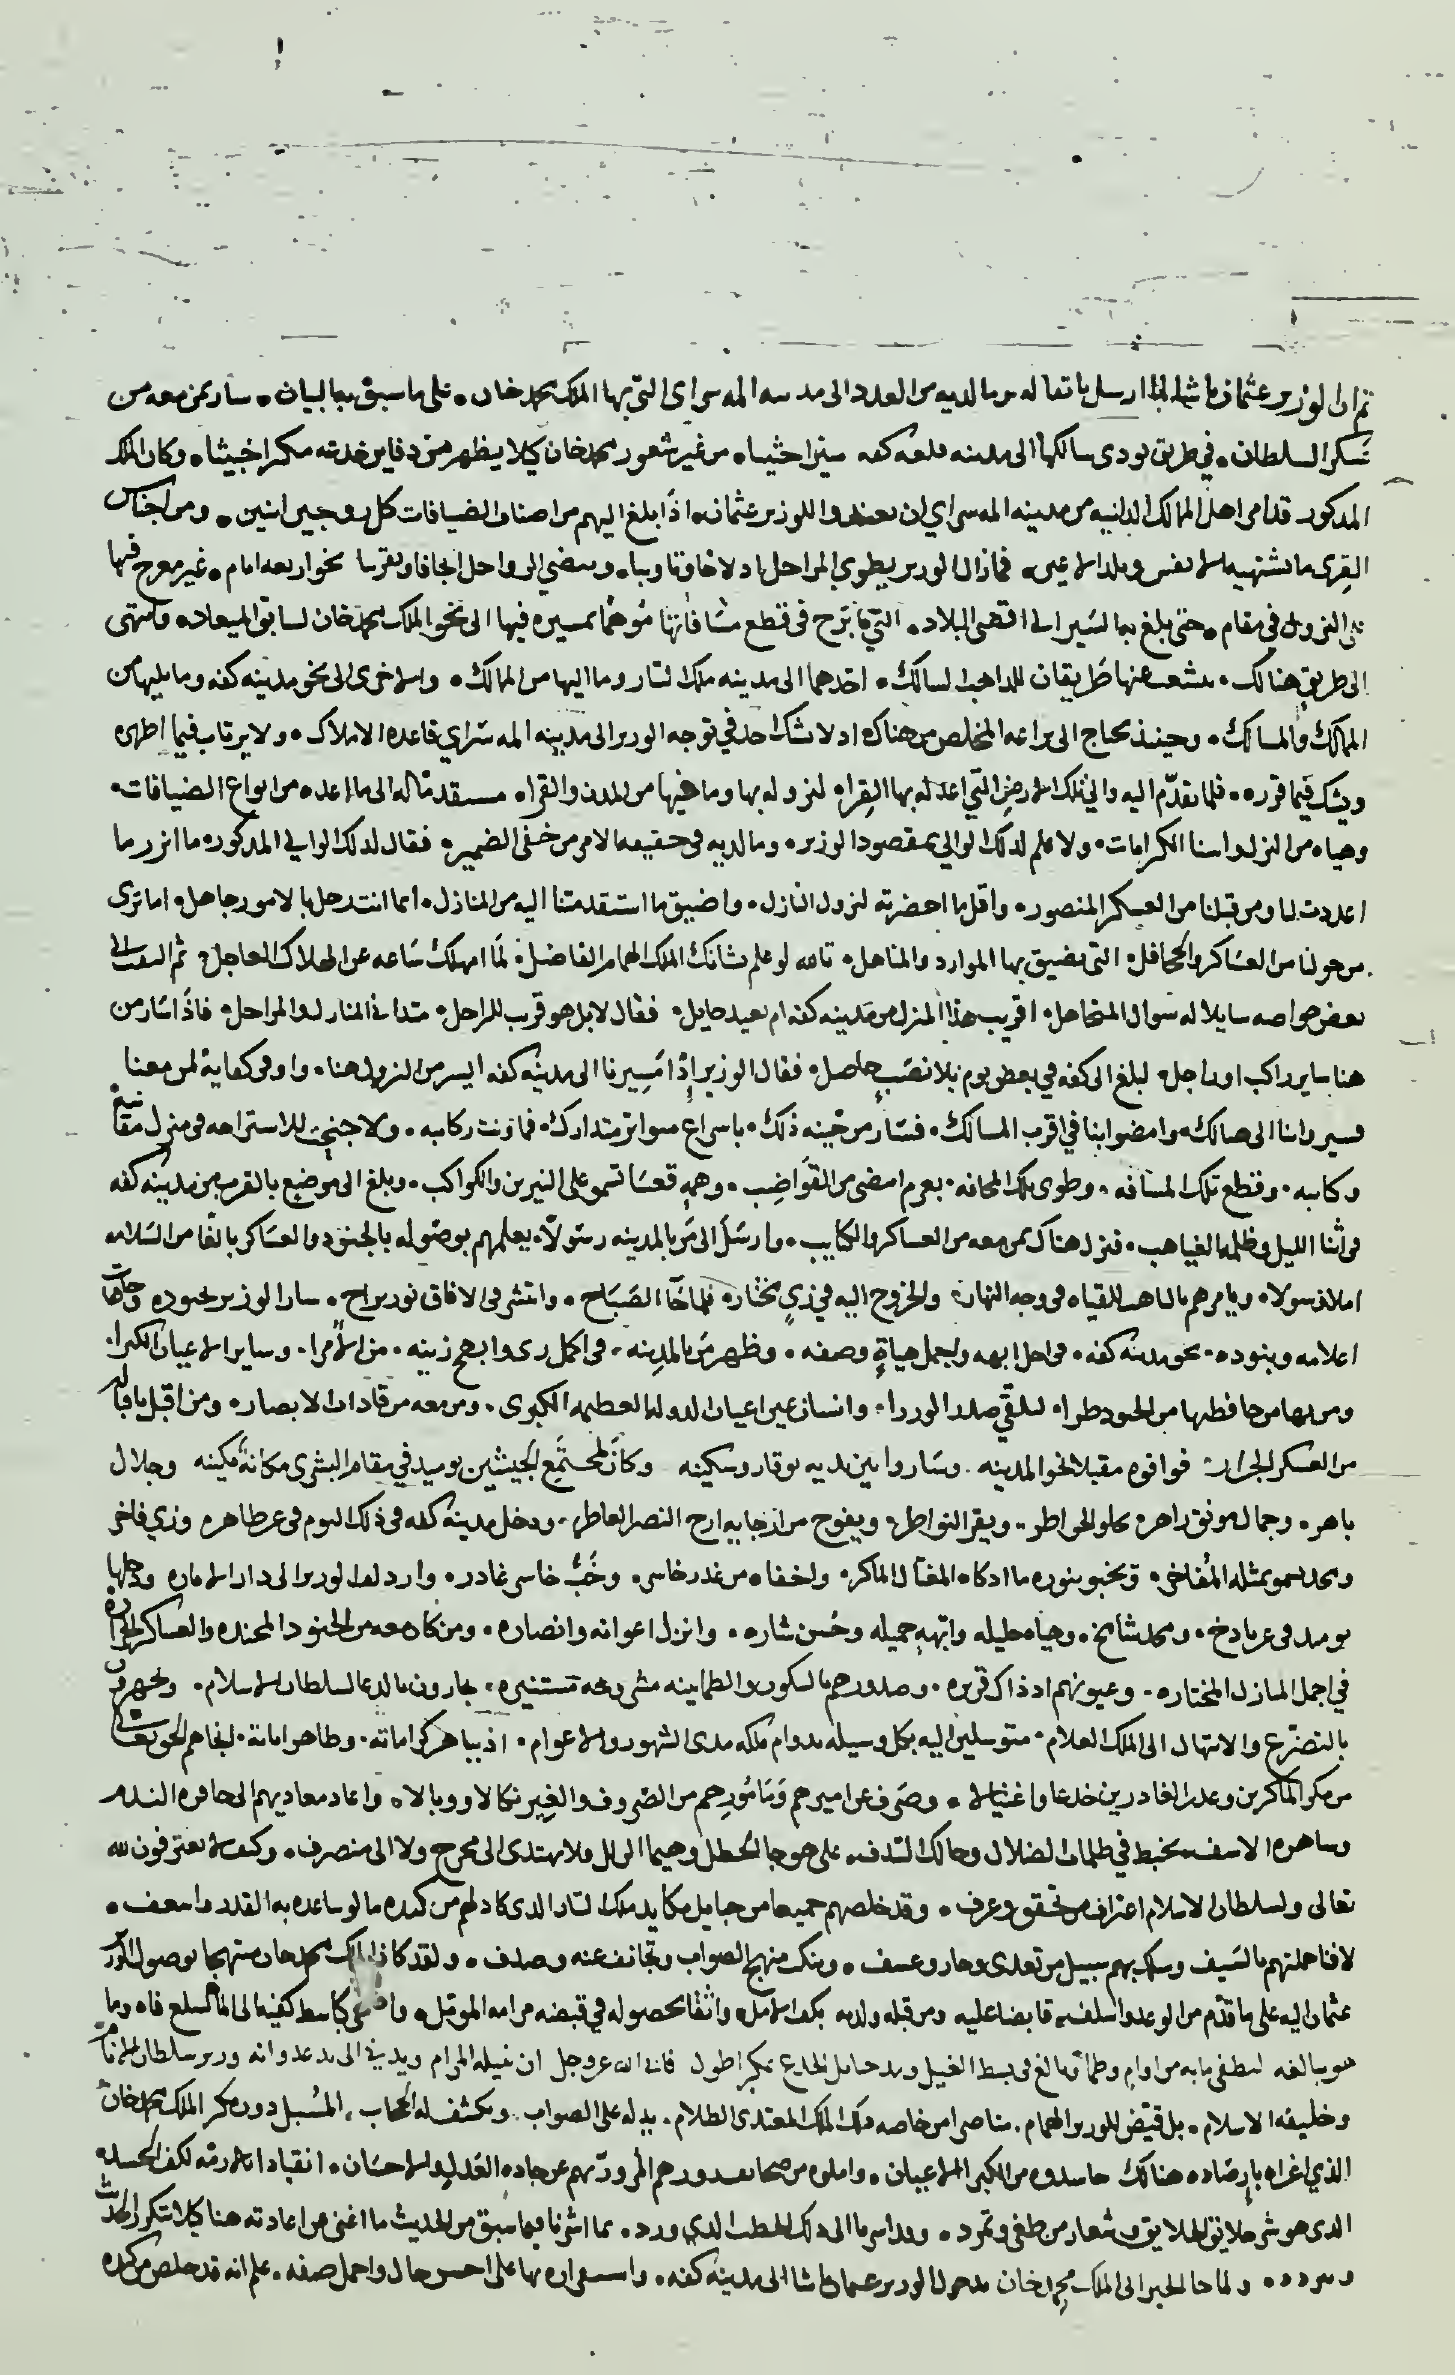 ثم ان الوزير عثمان باشا لما ارسل باثقاله وما لديه من العدد الى مدينه المه سراى التى بها الملك محمد خان. على ما سبق به البيان. سار بمن معه من
عسكر السلطان. في طريق يودى سالكها الى مدينه قلعه كفه سيرا حثيثا. من غير شعور محمد خان كيلا يظهر من دفاين خدعته مكرا خبيثا. وكان الملك
المذكور قد امر اهل الممالك الدانيه من مدينه المه سراي ان يعتدوا للوزير عثمان. اذا بلغ اليهم من اصناف الضيافات كل زوجين اثنين. ومن اجناس
القرى ما تشتهيه الانفس وتلذ الاعين. فما زال الوزير يطوي المراحل ادلاجا وتاويبا. وينضي الرواحل ايجافا وتقريبا نحو اربعه ايام. غير معرج فيها
على النزول في مقام. حتى بلغ به السير الى اقصى البلاد. التي ما برح في قطع مسافاتها موهما بمسيره فيها الى نحو الملك محمد خان لسابق الميعاد. وانتهى
الى طريق هنالك. ينشعب عنها طريقان للذاهب السالك. احدهما الى مدينه ملك التتار وما اليها من الممالك. والاخرى الى نحو مدينه كفه وما يليها من
الممالك والمسالك. وحينئذ يحتاج الى براعه المخلص من هناك اذ لا شك احد في توجه الوزير الى مدينه المه سراي قاعده الاملاك. ولا يرتاب فيما اظهره
ويشك فيما قرره. فلما تقدم اليه والي تلك الارض التي اعد له بها القراه لنزوله بها وما فيها من المدن والقرا. مستقدما له الى ما اعده من انواع الضيافات.
وهياه من النزل واسنا الكرامات. ولا علم لذلك الوالي بمقصود الوزير. وما لديه في حقيقه الامر من خفى الضمير. فقال لذلك الوالي المذكور. ما انزر ما
اعددت لنا ومن قبلنا من العسكر المنصور. واقل ما احضرته لنزول النازل. واضيق ما استقدمتنا اليه من المنازل. انما انت رجل بالامور جاهل. اما ترى
من حولنا من العساكر والجحافل. التى تضيق بها الموارد والمناهل. تالله لو علم بشانك الملك الهمام الفاضل. لما امهلك ساعه عن الهلاك العاجل. ثم التفت الى
بعض خواصه سايلا له سوال المتجاهل. اقريب هذا المنزل من مدينه كفه ام بعيد حايل. فقال لا بل هو قريب للراحل. متدانى المنازل والمراحل. فاذا سار من
هنا ساير راكب او راجل. لبلغ الى كفه في بعض يوم بلا نصب حاصل. فقال الوزير اذا مسيرنا الى مدينه كفه ايسر من النزول هنا. واوفى كفاية لمن معنا
فسيروا بنا الى هنالك وامضوا بنا في اقرب المسالك. فسار من حينه ذلك. باسراع متواتر متدارك. فما ونت ركابه. ولا جنح للاستراحه في منزل مقانبه
وكتايبه. وقطع تلك المسافه. وطوى تلك المخافه. بعزم امضى من القواضب. وهمه قعسا تسمو على النيرين والكواكب. وبلغ الى موضع بالقرب من مدينه كفه
في اثنا الليل وظلمه الغياهب. فنزل هناك بمن معه من العساكر والكتايب. وارسل الى من بالمدينه رسولا. يعلمهم بوصوله بالجنود والعساكر بالغا من السلامه
املا وسولا. ويامرهم بالتاهب للقياه في وجه النهار. والخروج اليه في زي مختار. فلما جا الصباح. وانتشر فى الافاق نور براح. سار الوزير بجنوده وخافقات
اعلامه وبنوده. نحو مدينه كفه. في اجل ابهه واجمل هياة وصفه. وظهر من بالمدينه. في اكمل زى وابهج زينه. من الامرا. وساير الاعيان الكبرا.
ومن بها من حافظيها من الجنود طرا. لتلقي صدر الوزرا. وانسان عين اعيان الدوله العظيمه الكبرى. ومن معه من قادات الابصار. ومن اقبل باقباله
من العسكر الجرار. فوافوه مقبلا نحو المدينه. وساروا بين يديه بوقار وسكينه وكان لمجتمع الجيشين يوميذ في مقام البشرى مكانة مكينه وجلال
باهر. وجمال مونق زاهر. يجلو الخواطر. ويقر النواظر. ويفوح من ارجايه ارج النصر العاطر. ودخل مدينه كفه في ذلك اليوم في عز ظاهر. وزي فاخر
ومجد يسمو بمثله المفاخر. وتخبو بنوره ما اذكاه المغتال الماكر. واخفاه من غدر خاسر. وخب خاسي غادر. وارد لف الوزير الى دار الاماره ودخلها
يوميذ في عز باذخ. ومجد شامخ. وهياه جليله وابهة جميله وحسن شاره. وانزل اعوانه وانصاره. ومن كان معه من الجنود المجنده والعساكر الجراره
في اجمل المنازل المختاره. وعيونهم اذ ذاك قريره. وصدورهم بالسكون والطمانينه مشروحه مستنيره. يجارون بالدعا لسلطان الاسلام. ويجهرون
بالتضرع والابتهال الى الملك العلام. متوسلين اليه بكل وسيله بدوام ملكه مدى الشهور والاعوام. اذ بباهر كراماته. وظاهر اماناته. انجاهم الحق تعالى
من مكر الماكرين وغدر الغادرين خدعا واغتيالا. وصرف عن اميرهم ومامورهم من الصروف والغير نكالا ووبالا. واعاد معاديهم الى حافره الندم
وساهره الاسف يخبط في ظلمات الضلال وحالك السدف. على هوجا الخطل وهيما الزلل فلا يهتدى الى مخرج ولا الى منصرف. وكيف لا يعترفون لله
تعالى ولسلطان الاسلام اعتراف من تحقق وعرف. وقد خلصهم جميعا من حبايل مكايد ملك التتار الذي كاد لهم من كيده ما لو ساعده به القدر واسعف.
لافنا جملتهم بالسيف وسلك بهم سبيل من تعدى وجار وعسف. وتنكب منهج الصواب وتجانف عنه وصدف. ولقد كان الملك محمد خان مبتهجا بوصول الوزير
عثمان اليه على ما قدم من الوعد واسلف. قابضا عليه ومن قبله ولديه بكف الامل. واثقا بحصوله في قبضه مرامه الموتل. واضحى كباسط كفيه الى الما ليبلغ فاه وما
هو ببالغه ليطفي ما به من اوام وظما وبالغ فى بسط الغيل ومد حبايل الخداع بمكر اطول فابى الله عز وجل ان ينيله المرام ويدني الى يد عدوانه وزير سلطان الانام
وخليفه الاسلام. بل قيض للوزير الهمام. مناصرا من خاصه ذلك الملك المعتدى الظلام. يدله على الصواب. ويكشف له الحجاب. المسبل دون مكر الملك محمد خان
الذي اغراه بارصاده هنالك حاسدوه من الكبرا الاعيان. واملوه من صحايف صدورهم المزور بهم عن جاده العدل والاحسان. انقيادا بازمته لكف الحسد
الذى هو شر خلايق الخلايق وشعار من طغى وتمرد. وقد اسرنا الى ذلك الخطب الذي ورد. بما اشرنا فيما سبق من الحديث ما اغنى عن اعادته هنا كيلا يتكرر الحديث
ويتردد. ولما جا الخبر الى الملك محمد خان بدخول الوزير عثمان باشا الى مدينه كفه. واستقراره بها على احسن حال واجمل صفه. علم انه قد خلص من كيده